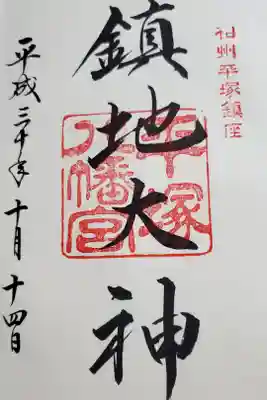 相州平塚鎮座
鎮地大神
平塚
八幡宮
平成三十年十月十四日